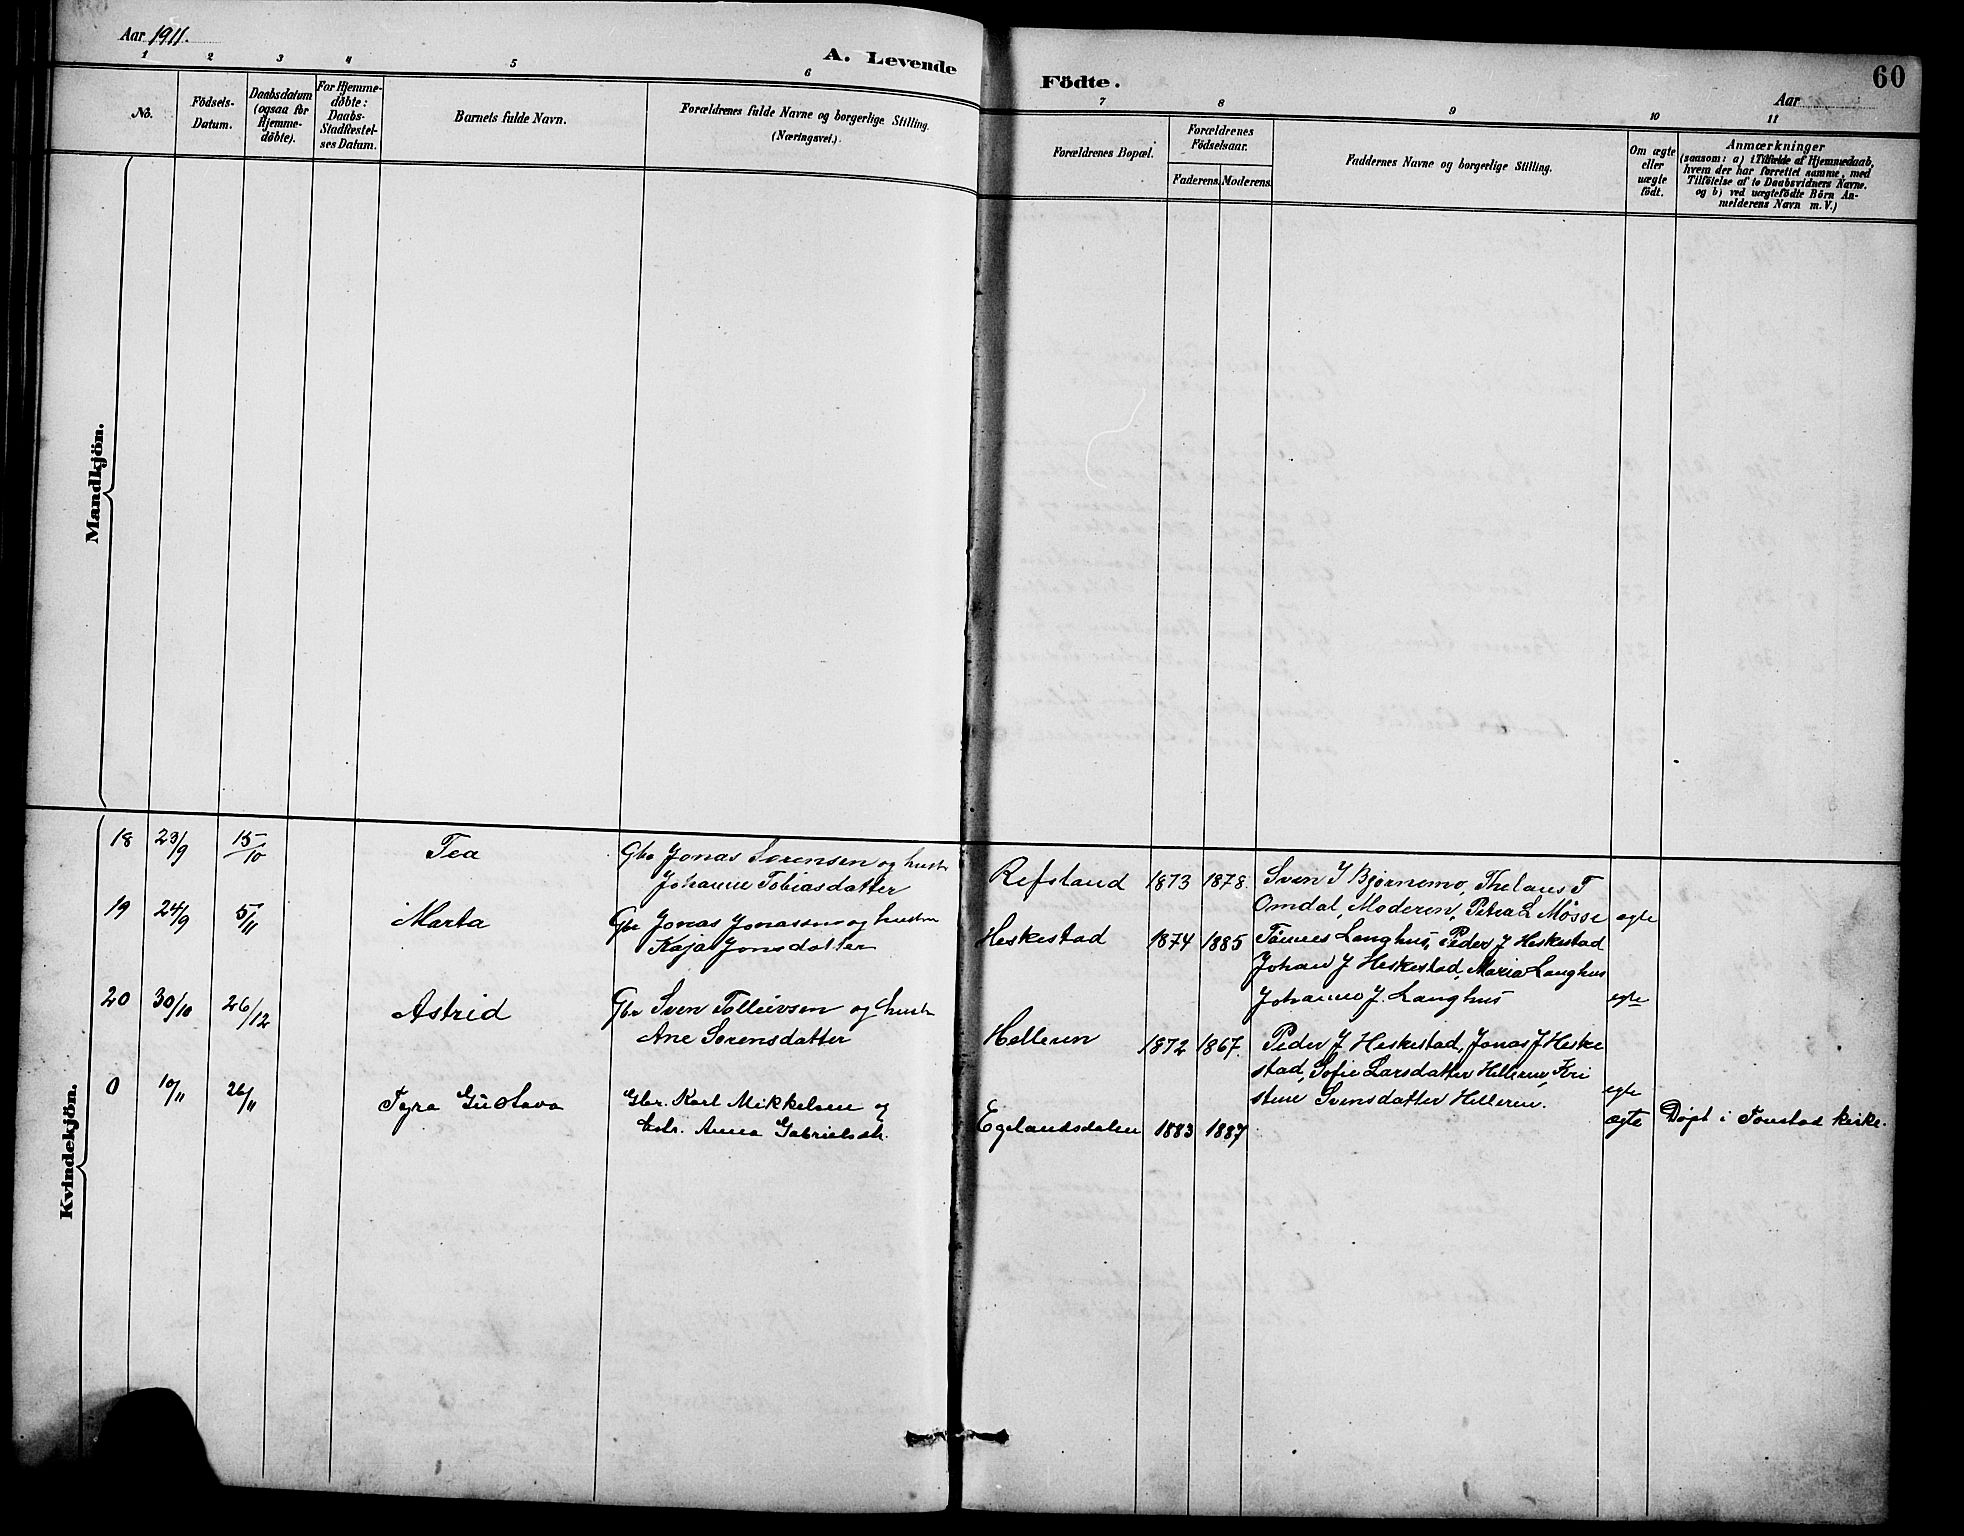 Aar 1911.
A. Levende Födte.
60
Aar
1 2 3 4 5 6 7 8 9 10 11
No.
Födsels-
Datum.
Daabsdatum
(ogsaa for
Hjemme-
döbte).
For Hjemme-
döbte:
Daabs-
Stadfæstel-
ses Datum.
Barnets fulde Navn.
Forældrenes fulde Navne og borgerlige Stilling.
(Næringsvei.)
Forældrenes Bopæl.
Forældrenes
Födselsaar.
Faderens. Moderens.
Faddernes Navne og borgerlige Stilling.
Om ægte
eller
uægte
födt.
Anmærkninger
(saasom: a) i Tilfælde af Hjemmedaab,
hvem der har forrettet samme, med
Tilföielse af to Daabsvidners Navne.
og b) ved uægtefödte Börn An-
melderens Navn m. V.)
Mandkjön.
Kvindekjön.
18 23/9 15/10 Tea Gbr Jonas Sørensen og hustr
Johanne Tobiasdatter
Refsland 1873 1878. Sven J Bjørnemo, T
Omdal, Moderen, Petra L Møsse ægte
19 24/9 5/11 Marta Gbr Jonas Jonassen og hustru
Kaja Jonsdatter
Heskestad 1874 1885 Tønnes Langhus, Peder J Heskestad
Johan J Heskestad, Maria Langhus
Johanne J. Langhus egte
20 30/10 26/12 Astrid Gbr Sven Tolleivsen og hustr
Ane Sørensdatter
Helleren 1872 1867. Peder J Heskestad, Jonas J Heske
stad, Sofie Larsdatter Helleren, Kri
stine Svensdatter Helleren. egte
0 10/11 26/11 Tyra Gustava Gbr. Karl Mikkelsen og
Anna Gabrielsdtr.
Egelandsdalen 1883 1887 ægte Døpt i Tonstad kirke.